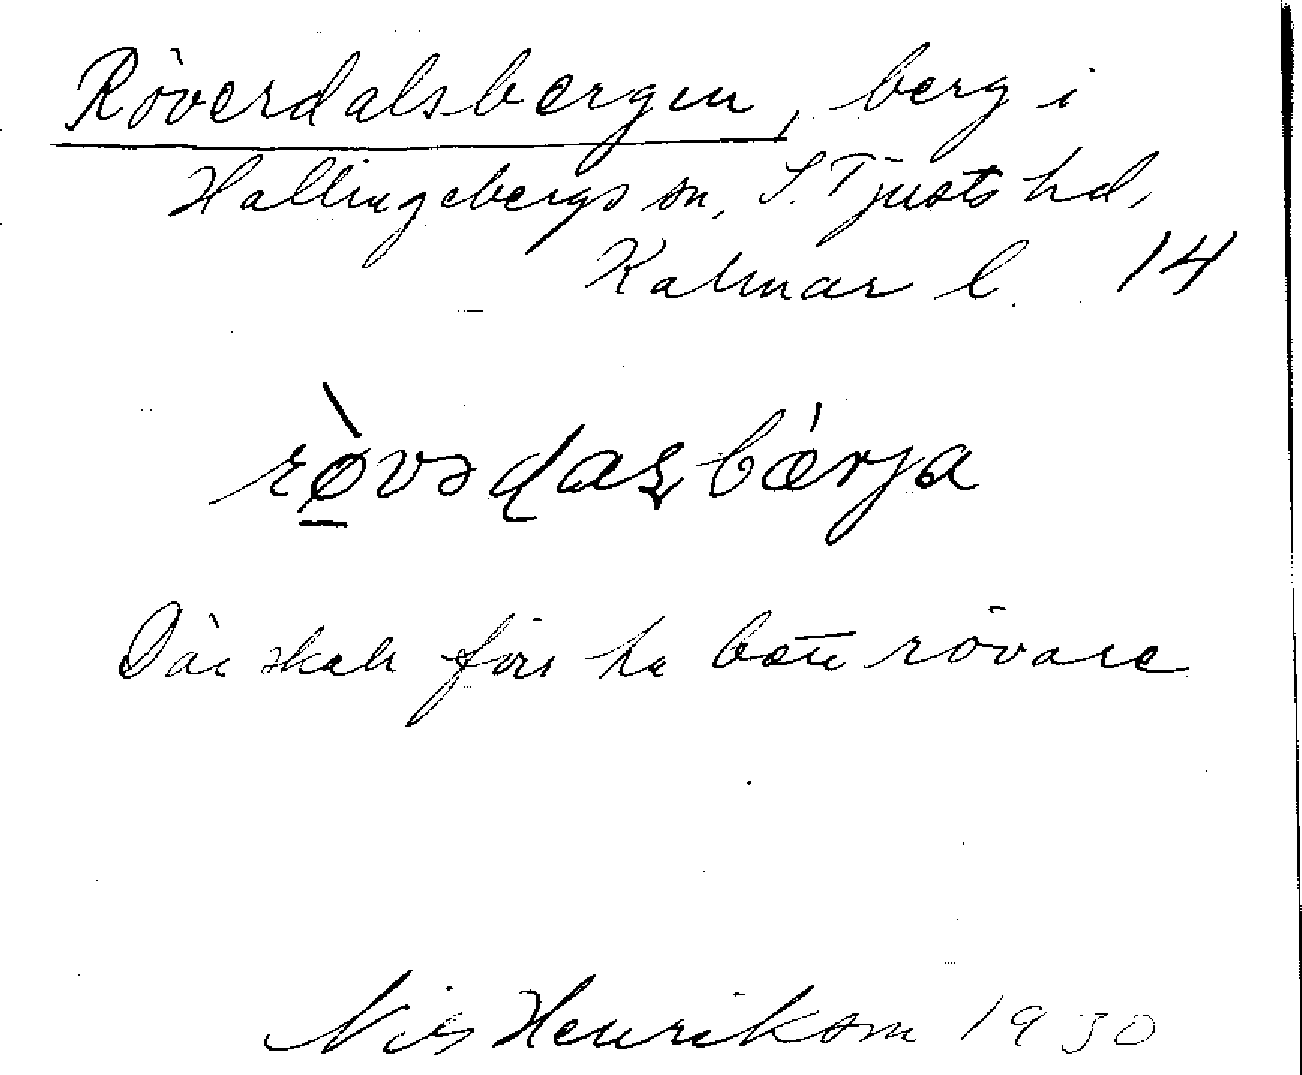 Röverdalsbergen, berg i
Hallingebergs sn, S. Tjusts hd,
Kalmar l. 14
rø̀vəɖasbǽrja
Där skall förr ha bott rövare
Nils Henrikson 1930